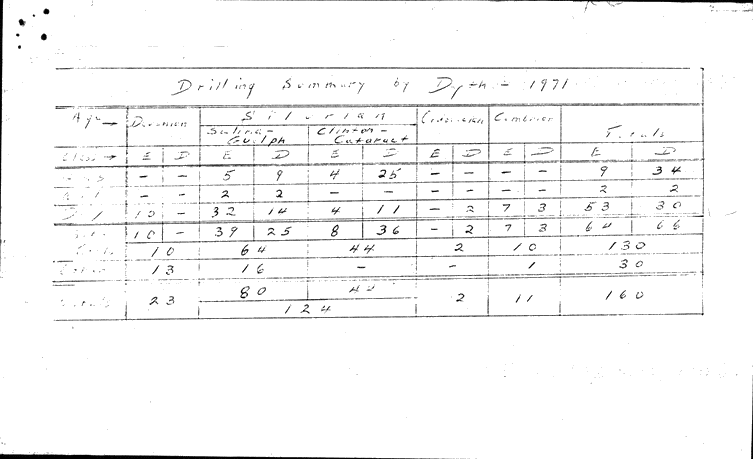 Drilling Summary by Depth - 1971
Age → Devonian Silurian Ordovician Cambrian Totals
Salina- Guelph Clinton- Cataract
Class → E D E D E D E D E D E D
- - 5 9 4 25 - - - - 9 34
- - 2 2 - - - - - - 2 2
10 - 32 14 4 11 - 2 7 3 53 30
10 - 39 25 8 36 - 2 7 3 64 66
10 64 44 2 10 130
13 16 - - 1 30
23 80 44 2 11 160
124